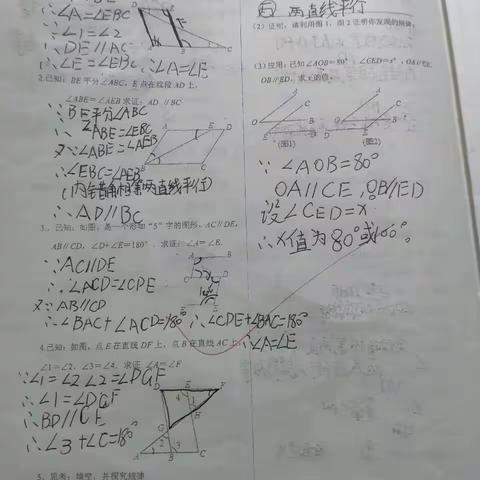 ∴∠A=∠EBC
∵∠1=∠2
∴DE∥AC
∴∠E=∠EBC ∴∠A=∠E
2.已知：BE平分∠ABC，E点在线段AD上，
∠ABE=∠AEB 求证：AD∥BC
∵BE平分∠ABC
∴∠ABE=∠EBC
又∵∠ABE=∠AEB
∴∠EBC=∠AEB
(内错角相等两直线平行)
∴AD∥BC
3、已知：如图，是一个形如“5”字的图形，AC∥DE，
AB∥CD，∠D+∠E=180°．求证：∠A=∠E．
∵AC∥DE
∴∠ACD=∠CDE
又∵AB∥CD
∴∠BAC+∠ACD=180° ∴∠CDE+∠BAC=180°
∴∠A=∠E
4.已知：如图，点E在直线DF上，点B在直线AC上，
∠1=∠2，∠3=∠4．求证 ∠A=∠F
∵∠1=∠2 ∠2=∠DGF
∴∠1=∠DGF
∴BD∥CE
∴∠3+∠C=180°
5、思考：填空，并探究规律
两直线平行
(2) 证明：请利用图1，图2证明你发现的规律；
(3) 应用：已知∠AOB=80°，∠CED=x°，OA∥CE，
OB∥ED，求x的值．
(图1) (图2)
∵∠AOB=80°
OA∥CE，OB∥ED
设∠CED=x
∴x值为80°或100°。